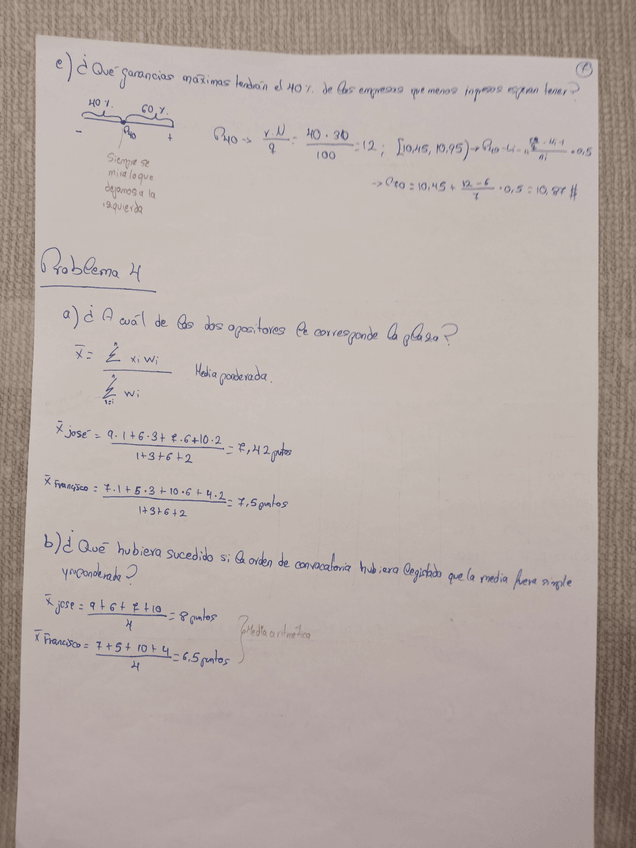 e) ¿Qué ganancias máximas tendrán el 40% de las empresas que menos ingresos esperan tener?
40% 60%
P40
- +
Siempre se
mira lo que
dejamos a la
izquierda
P40 → r·N/q = 40·30/100 = 12; [10,45, 10,95) →
→ P40 = 10,45 + 12-6/7 · 0,5 = 10,87 //
Problema 4
a) ¿A cuál de los dos opositores le corresponde la plaza?
x̄ = Σ xi wi / Σ wi Media ponderada.
x̄ José = 9·1+6·3+7·6+10·2 / 1+3+6+2 = 7,42 puntos
x̄ Francisco = 7·1+5·3+10·6+4·2 / 1+3+6+2 = 7,5 puntos
b) ¿Qué hubiera sucedido si la orden de convocatoria hubiera legislado que la media fuera simple
y no ponderada?
x̄ jose = 9+6+7+10 / 4 = 8 puntos
x̄ Francisco = 7+5+10+4 / 4 = 6,5 puntos
Media aritmética